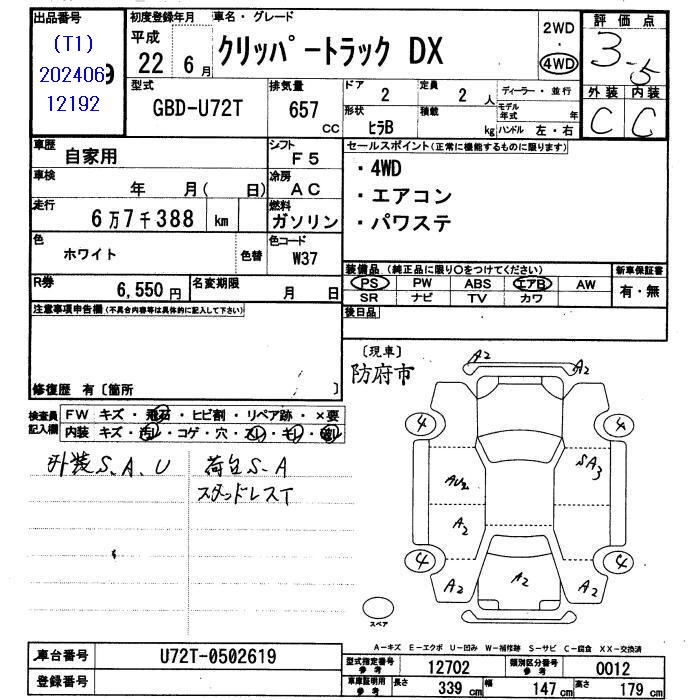 出品番号 初度登録年月 車名・グレード 評価点
(T1) 平成 クリッパートラック DX 2WD
202406 9 22 6月 4WD 3.5
12192 型式 排気量 ドア 2 定員 2人 ディーラー・並行 外装 内装
GBD-U72T 657cc 形状 ヒラB 積載 kg モデル年式 年 ハンドル 左・右 C C
車歴 自家用 シフト F5 セールスポイント(正常に機能するものに限ります)
車検 年 月( 日) 冷房 AC ・4WD
走行 6万7千388 km 燃料 ガソリン ・エアコン
色 ホワイト 色替 色コード W37 ・パワステ
R券 6,550円 名変期限 月 日
装備品(純正品に限り○をつけてください) 新車保証書
PS PW ABS エアB AW 有・無
SR ナビ TV カワ
注意事項申告欄(不具合内容等は具体的に記入して下さい) 後日品
修復歴 有〔箇所 〕
〔現車〕
防府市
検査員記入欄 FW キズ・飛石・ヒビ割・リペア跡・×要
内装 キズ・汚レ・コゲ・穴・スレ・キレ・破レ
外装S、A、U 荷台S、A
スタッドレスT
A2
A2
4 4
AU2 SA3
A2
4 4
A2 A2 A2
スペア
A-キズ E-エクボ U-凹み W-補修跡 S-サビ C-腐食 XX-交換済
車台番号 U72T-0502619 型式指定番号 参考 12702 類別区分番号 参考 0012
登録番号 車庫証明用 参考 長さ 339cm 幅 147cm 高さ 179cm